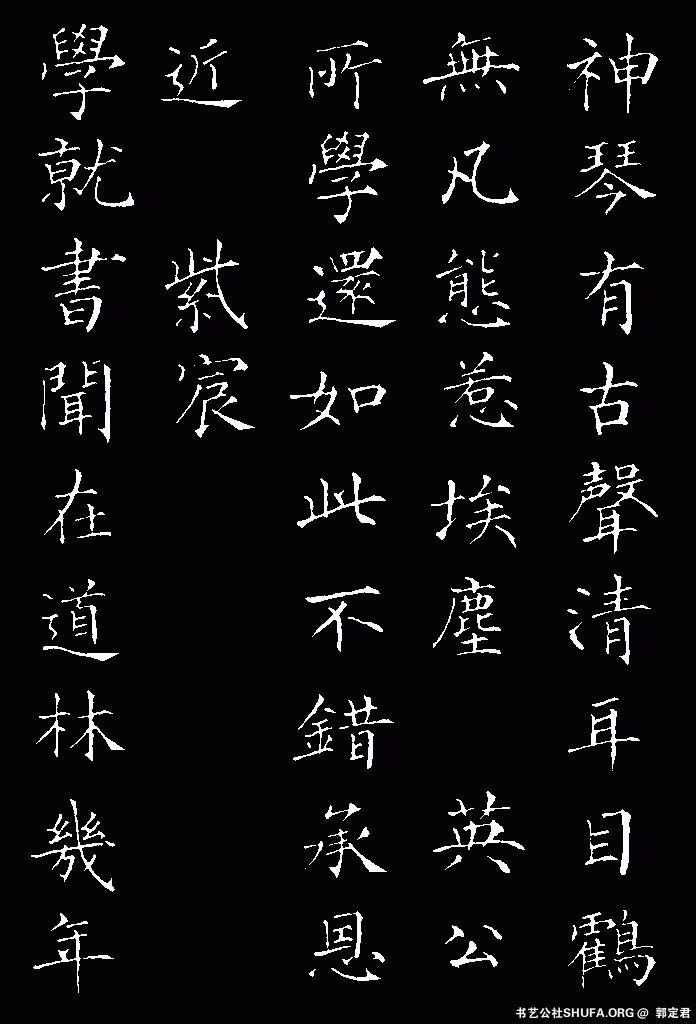 神琴有古聲清耳目鸖
無凡態惹埃塵 英公
所學還如此不錯承恩
近 紫宸
學就書聞在道林幾年
书艺公社SHUFA.ORG @ 郭定君